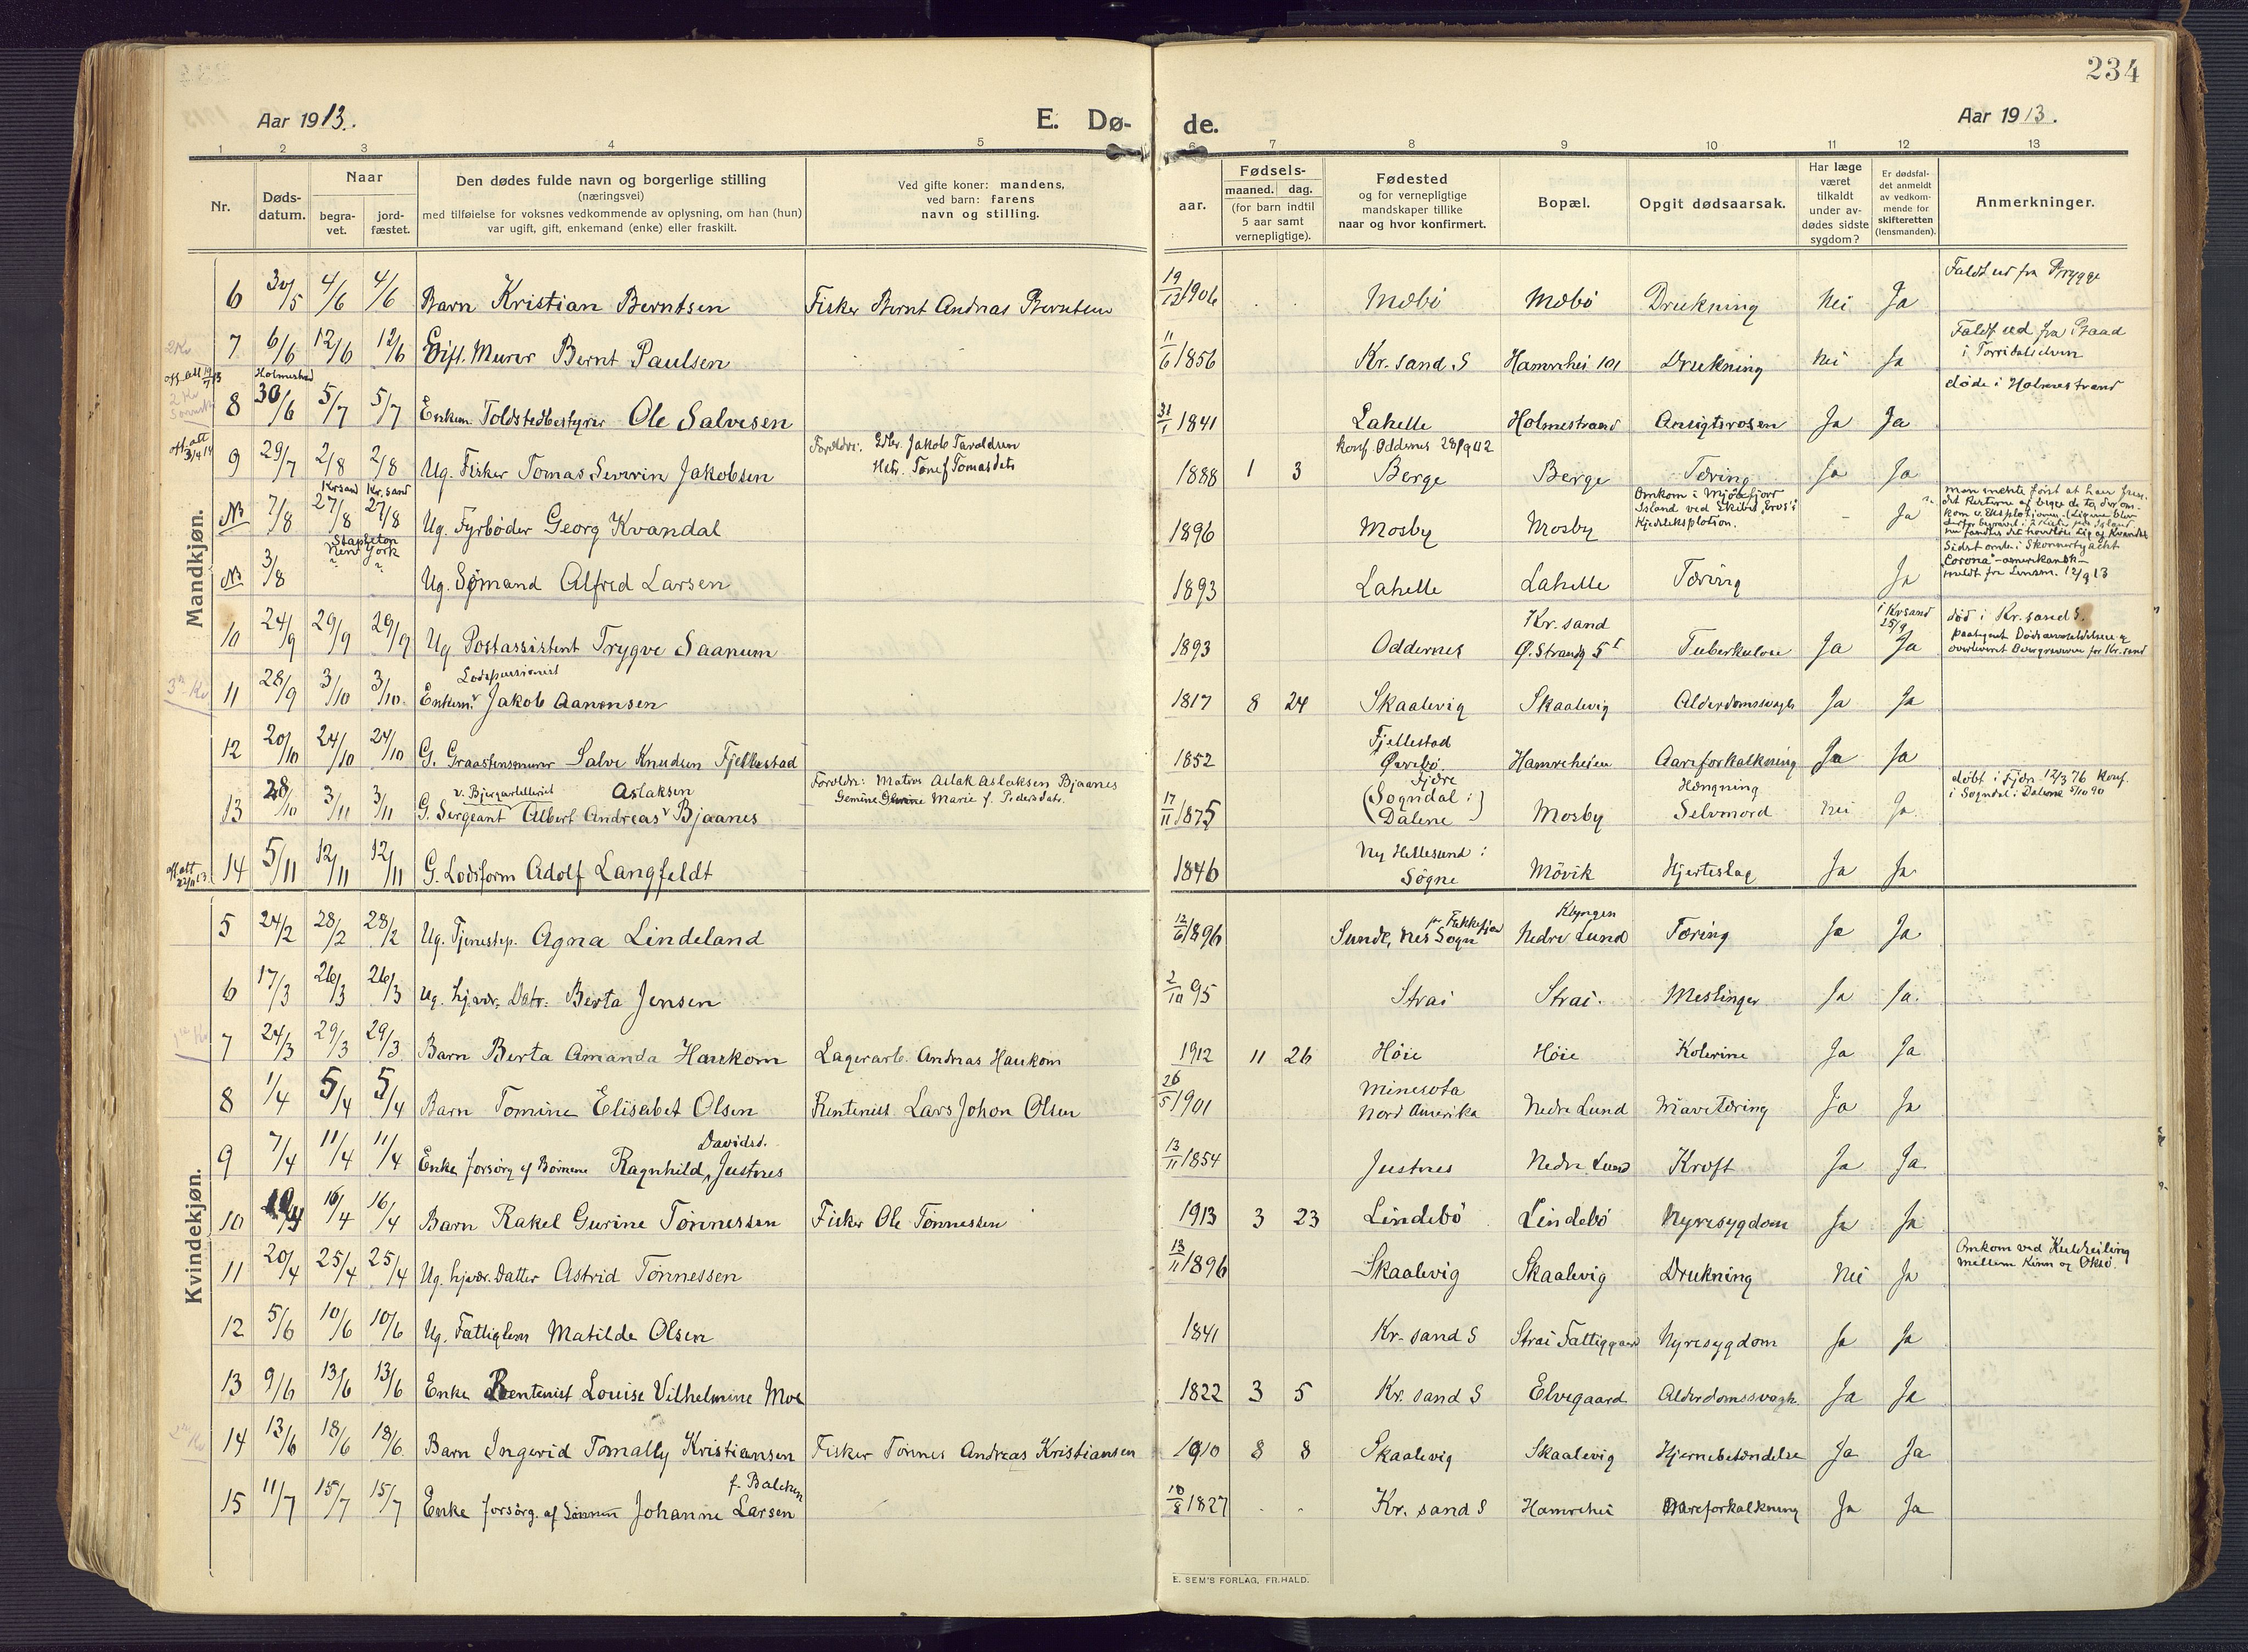 234
Aar 1913.
E. Dø-
de.
Aar 1913.
1 2 3 4 5 6 7 8 9 10 11 12 13
Nr.
Døds-
datum.
Naar
begra-
vet.
jord-
fæstet.
Den dødes fulde navn og borgerlige stilling
(næringsvei)
med tilføielse for voksnes vedkommende av oplysning, om han (hun)
var ugift, gift, enkemand (enke) eller fraskilt.
Ved gifte koner: mandens,
ved barn: farens
navn og stilling.
aar.
Fødsels-
maaned. dag.
(for barn indtil
5 aar samt
vernepligtige).
Fødested
og for vernepligtige
mandskaper tillike
naar og hvor konfirmert.
Bopæl.
Opgit dødsaarsak.
Har læge
været
tilkaldt
under av-
dødes sidste
sygdom?
Er dødsfal-
det anmeldt
av vedkom-
mende for
skifteretten
(lensmanden).
Anmerkninger.
Mandkjøn.
6 30/5 4/6 4/6 Barn Kristian Berntsen Fisker Bernt Andreas Berntsen 19/12 1906 Mæbö Mæbö Drukning Nei Ja Faldt ud fra Brygge
7 6/6 12/6 12/6 Gift. Murer Bernt Paulsen 11/6 1856 Kr. sand. S Hamrehei 101 Drukning Nei Ja Faldt ud fra Baad
i Torridalselven
8 30/6 5/7 5/7 Enkem. Toldstedbestyrer Ole Salvesen 31/1 1841 Lahelle Holmestrand Ansigtsrosen Ja Ja døde i Holmestrand
9 29/7 2/8 2/8 Ug. Fisker Tomas Severin Jakobsen Foreldre: Gbr. Jakob Taraldsen
Hstr. Tonef Tomasdatr 1888 1 3 konf. Oddernes 28/9 02
Berge Berge Tæring Ja Ja
NB 7/8 Krsand 27/8 Kr. sand 27/8 Ug. Fyrbøder Georg Kvandal 1896 Mosby Mosby Omkom i Mjóafjorr
Island ved Skibet "Eros"s
Kjedeleksplotion. - Ja
NB 3/8 Stapleton
New York
? ? Ug. Sømand Alfred Larsen 1893 Lahelle Lahelle Tæring Ja Sidst ombe i Skonnertyacht
"Corona" - amerikansk -
meldt fra Lensm. 12/9 13
10 24/9 29/9 29/9 Ug Postassistent Trygve Saanum 1893 Oddernes Kr. sand
Ø. Strandg 5 I Tuberkulose Ja i Krsand
25/9
Ja død i Kr. sand S.
11 28/9 3/10 3/10. Lodspensionist
Enkem. Jakob Aanensen 1817 8 24 Skaalevig Skaalevig Alderdomssvagh Ja Ja
12 20/10 24/10 24/10 G. Graastensmurer Salve Knudsen Fjellestad 1852 Fjellestad
Øvrebø Hamreheien Aareforkalkning Ja Ja
13 28/10 3/11 3/11 v. Bjergartelleriet Aslaksen
G. Sergeant Albert Andreas Bjaanes Foreldre: Matros Aslak Aslaksen Bjaanes
Gemine Marie f. Pedersdatr. 17/11 1875 Fjære
(Sogndal i
Dalene) Mosby Hængning
Selvmord Nei Ja døbt i Fjære 12/3 76 konf.
i Sogndal i Dalene 5/10 90
14 5/11 12/11 12/11 G. Lodsform Adolf Langfeldt 1846 Ny Hellesund i
Søgne Mövik Hjerteslag Ja Ja
Kvindekjøn.
5 24/2 28/2 28/2 Ug. Tjenestep. Agna Lindeland 12/6 1896 Sunde, Nes Sogn Klyngen
Nedre Lund Tæring Ja Ja
6 17/3 26/3 26/3 Ug. hjvær. Datr. Berta Jensen 2/10 95 Strai Strai. Meslinger Ja Ja.
7 24/3 29/3 29/3 Barn Berta Amanda Haukom Lagerarb. Andreas Haukom 1912 11 26 Höie Höie Kolerine Ja Ja
8 1/4 5/4 5/4 Barn Tomine Elisabet Olsen Rentenist Lars Johon Olsen 26/5 1901 Minesota
Nord Amerika Nedre Lund Mavetæring Ja Ja
9 7/4 11/4 11/4 Davidsd.
Enke forsørg. af Børnene Ragnhild Justnes 13/11 1854 Justnes Nedre Lund Kreft Ja Ja
10 16/4 16/4 Barn Rakel Gurine Tønnessen Fisker Ole Tønnessen 1913 3 23 Lindebö Lindebö Nyresygdom Ja Ja
11 20/4 25/4 25/4 Ug. hjvær. Datter Astrid Tønnessen 13/11 1896 Skaalevig Skaalevig Drukning Nei Ja Omkom ved Kuldseiling
mellem Kinn og Oksö.
12 5/6 10/6 10/6 Ug. Fattiglem Matilde Olsen 1841 Kr. sand S Strai Fattiggaard Nyresygdom Ja Ja
13 9/6 13/6 13/6 Enke Rentenist Louise Vilhelmine Moe 1822 3 5 Kr. sand S Elvegaard Alderdomssvagh. Ja Ja
14 13/6 18/6 18/6 Barn Ingerid Tomally Kristiansen Fisker Tønnes Andreas Kristiansen 1910 8 8 Skaalevig Skaalevig Hjernebetændelse Ja Ja
15 11/7 15/7 15/7 f. Balchen
Enke forsørg. af Sønnen Johanne Larsen 10/8 1827 Kr. sand S Hamrehei Aareforkalkning Ja Ja
E. SEM'S FORLAG, FR.HALD.